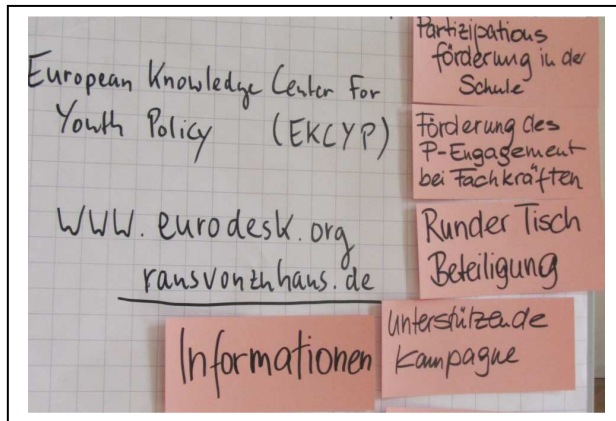 European Knowledge Center For
Youth Policy (EKCYP)
www.eurodesk.org
rausvonzuhaus.de
Partizipations
förderung in der
Schule
Förderung des
P-Engagement
bei Fachkräften
Runder Tisch
Beteiligung
Informationen
Unterstützende
Kampagne